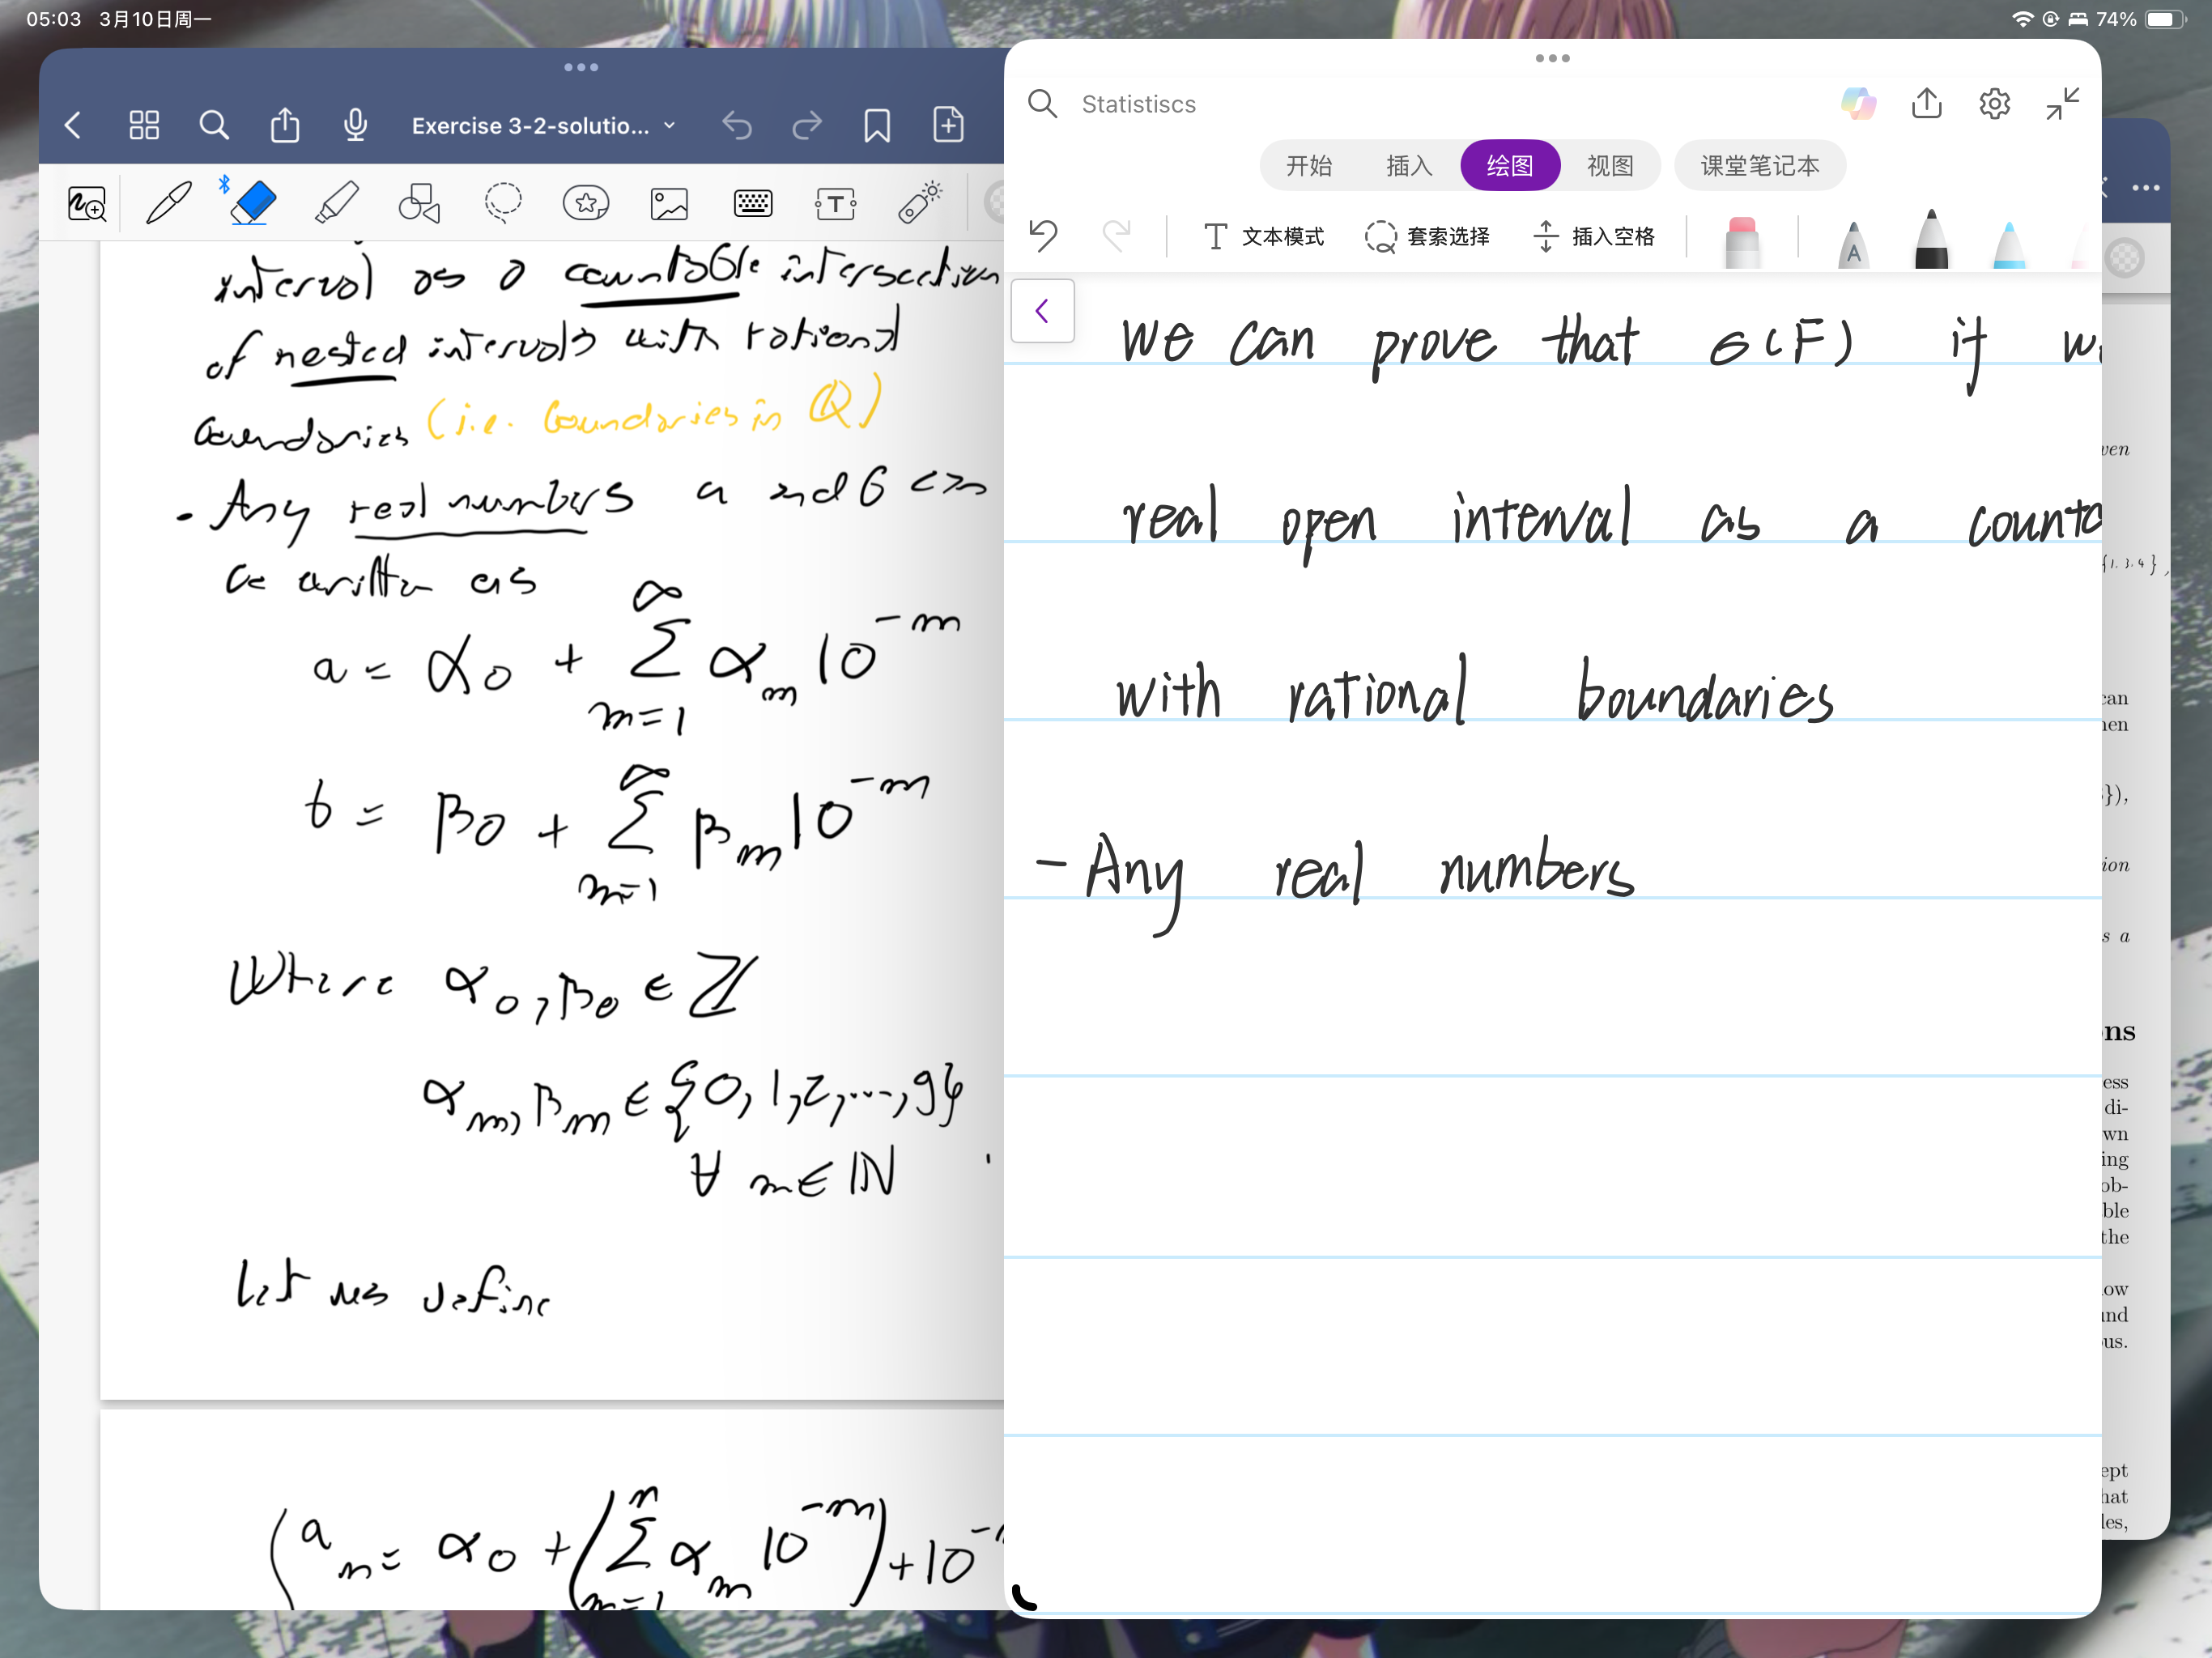 05:03 3月10日周一
74%
Exercise 3-2-solutio...
interval as a countable intersection
of nested intervals with rational
boundaries (i.e. boundaries in ℚ)
- Any real numbers a and b can
be written as
a = α₀ + ∑_{m=1}^{∞} α_m 10^{-m}
b = β₀ + ∑_{m=1}^{∞} β_m 10^{-m}
Where α₀, β₀ ∈ ℤ
α_m, β_m ∈ {0, 1, 2, ..., 9}
∀ m ∈ ℕ .
Let us define
a_n = α₀ + (∑_{m=1}^{n} α_m 10^{-m}) + 10^-
Statistiscs
开始 插入 绘图 视图 课堂笔记本
T 文本模式 套索选择 插入空格
A
We can prove that σ(F) if w
real open interval as a counta
with rational boundaries
- Any real numbers
ven
{1, 3, 4},
can
hen
}),
ion
s a
ons
ess
di-
wn
ing
ob-
ble
the
ow
und
ous.
ept
hat
les,